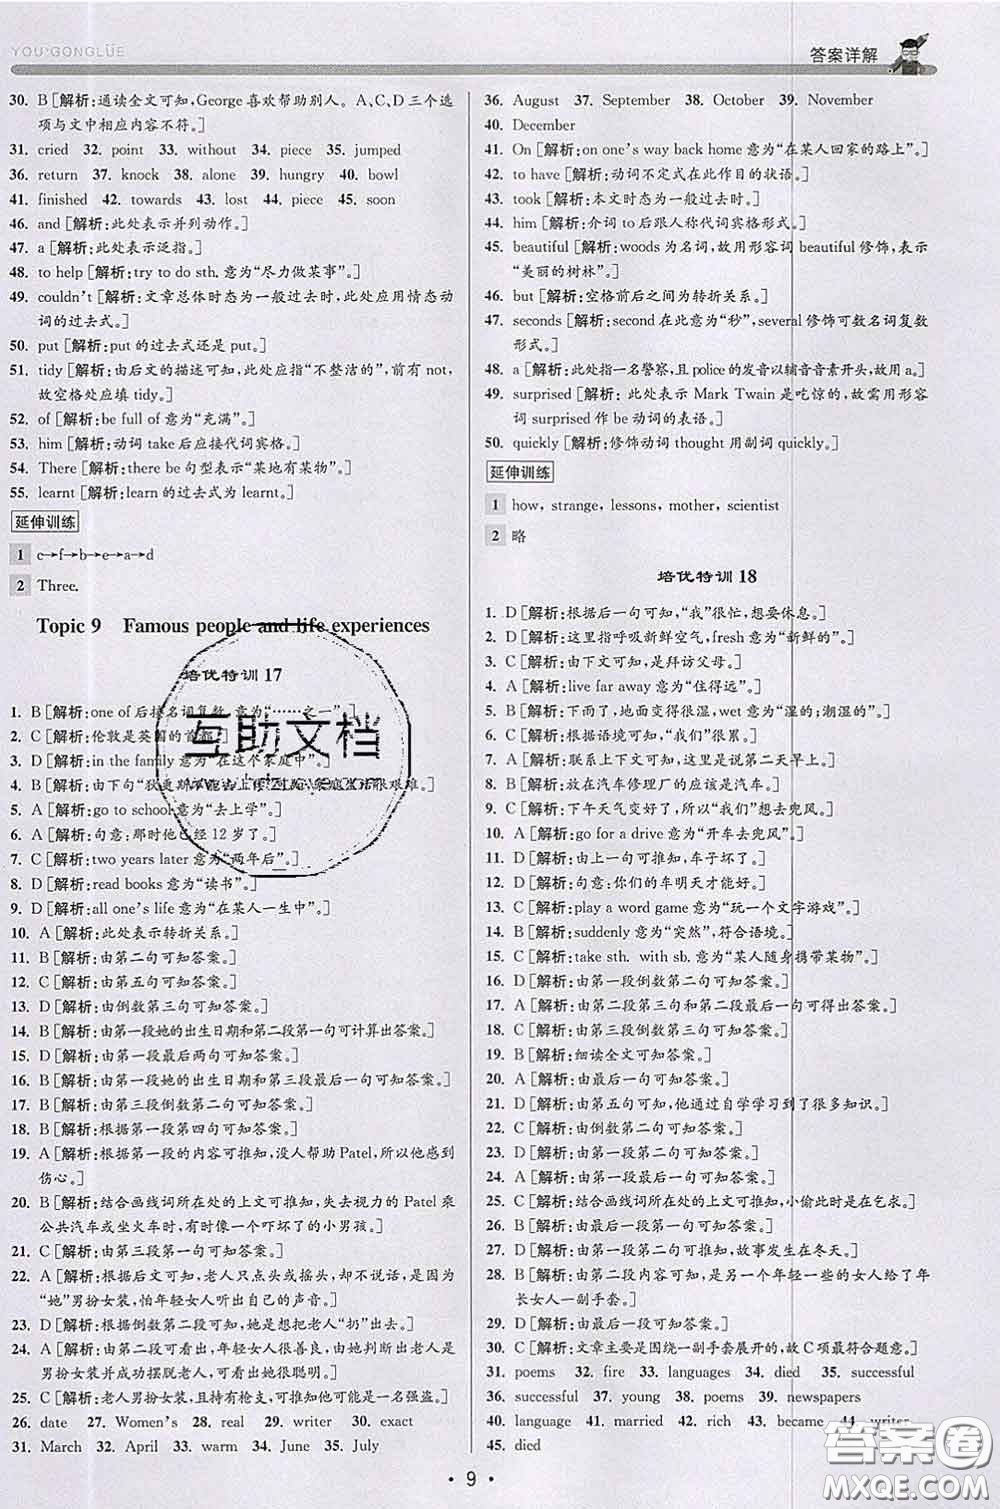 YOU GONGLÜE
答案详解
30. B [解析:通读全文可知,George 喜欢帮助别人。A、C、D三个选
项与文中相应内容不符。]
31. cried 32. point 33. without 34. piece 35. jumped
36. return 37. knock 38. alone 39. hungry 40. bowl
41. finished 42. towards 43. lost 44. piece 45. soon
46. and [解析:此处表示并列动作。]
47. a [解析:此处表示泛指。]
48. to help [解析:try to do sth. 意为“尽力做某事”。]
49. couldn't [解析:文章总体时态为一般过去时,此处应用情态动
词的过去式。]
50. put [解析:put 的过去式还是 put。]
51. tidy [解析:由后文的描述可知,此处应指“不整洁的”,前有 not,
故空格处应填 tidy。]
52. of [解析:be full of 意为“充满”。]
53. him [解析:动词 take 后应接代词宾格。]
54. There [解析:there be 句型表示“某地有某物”。]
55. learnt [解析:learn 的过去式为 learnt。]
延伸训练
1 c→f→b→e→a→d
2 Three.
Topic 9 Famous people and life experiences
培优特训 17
1. B [解析:one of 后接名词复数,意为“……之一”。]
2. C [解析:伦敦是英国的首都。]
3. D [解析:in the family 意为“在这个家庭中”。]
4. B [解析:由下句“狄更斯不能去上学”可推知,家庭生活很艰难。]
5. A [解析:go to school 意为“去上学”。]
6. A [解析:句意:那时他已经 12 岁了。]
7. C [解析:two years later 意为“两年后”。]
8. D [解析:read books 意为“读书”。]
9. D [解析:all one's life 意为“在某人一生中”。]
10. A [解析:此处表示转折关系。]
11. B [解析:由第二句可知答案。]
12. C [解析:由第五句可知答案。]
13. D [解析:由倒数第三句可知答案。]
14. B [解析:由第一段她的出生日期和第二段第一句可计算出答案。]
15. D [解析:由第一段最后两句可知答案。]
16. B [解析:由第一段她的出生日期和第三段最后一句可知答案。]
17. B [解析:由第三段倒数第二句可知答案。]
18. B [解析:根据第一段第四句可知答案。]
19. A [解析:根据第一段的内容可推知,没人帮助 Patel,所以他感到
伤心。]
20. B [解析:结合画线词所在处的上文可推知,失去视力的 Patel 乘
公共汽车或坐火车时,有时候就像一个吓坏了的小男孩。]
21. C [解析:由第三段第一句可知答案。]
22. A [解析:根据后文可知,老人只点头或摇头,却不说话,是因为
“她”男扮女装,怕年轻女人听出自己的声音。]
23. D [解析:根据倒数第二段可知,她是想把老人“扔”出去。]
24. A [解析:由第二段可看出,年轻女人很善良,由她判断出老人是
男扮女装并成功摆脱老人,可看出她很聪明。]
25. C [解析:老人男扮女装,且持有枪支,可推知他可能是一名强盗。]
26. date 27. Women's 28. real 29. writer 30. exact
31. March 32. April 33. warm 34. June 35. July
36. August 37. September 38. October 39. November
40. December
41. On [解析:on one's way back home 意为“在某人回家的路上”。]
42. to have [解析:动词不定式在此作目的状语。]
43. took [解析:本文时态为一般过去时。]
44. him [解析:介词 to 后跟人称代词宾格形式。]
45. beautiful [解析:woods 为名词,故用形容词 beautiful 修饰,表示
“美丽的树林”。]
46. but [解析:空格前后之间为转折关系。]
47. seconds [解析:second 在此意为“秒”,several 修饰可数名词复数
形式。]
48. a [解析:此处指一名警察,且 police 的发音以辅音音素开头,故用 a。]
49. surprised [解析:此处表示 Mark Twain 是吃惊的,故需用形容
词 surprised 作 be 动词的表语。]
50. quickly [解析:修饰动词 thought 用副词 quickly。]
延伸训练
1 how, strange, lessons, mother, scientist
2 略
培优特训 18
1. D [解析:根据后一句可知,“我”很忙,想要休息。]
2. D [解析:这里指呼吸新鲜空气,fresh 意为“新鲜的”。]
3. C [解析:由下文可知,是拜访父母。]
4. A [解析:live far away 意为“住得远”。]
5. B [解析:下雨了,地面变得很湿,wet 意为“湿的;潮湿的”。]
6. C [解析:根据语境可知,“我们”起晚了。]
7. A [解析:联系上下文可知,这是说第二天早上。]
8. B [解析:放在汽车修理厂的应该是汽车。]
9. C [解析:下午天气变好了,所以“我们”想去兜风。]
10. A [解析:go for a drive 意为“开车去兜风”。]
11. D [解析:由上一句可推知,车子坏了。]
12. D [解析:句意:你们的车明天才能好。]
13. C [解析:play a word game 意为“玩一个文字游戏”。]
14. B [解析:suddenly 意为“突然”,符合语境。]
15. C [解析:take sth. with sb. 意为“某人随身携带某物”。]
16. D [解析:由第一段倒数第二句可知答案。]
17. A [解析:由第二段第三句和第二段最后一句可得出答案。]
18. C [解析:由第三段倒数第三句可知答案。]
19. B [解析:细读全文可知答案。]
20. A [解析:由最后一句可知答案。]
21. D [解析:由第五句可知,他通过自学学习到了很多知识。]
22. C [解析:由倒数第二句可知答案。]
23. A [解析:由第二段第一句可知答案。]
24. A [解析:由第一段最后一句可知答案。]
25. C [解析:结合画线词所在处的上文可推知,小偷此时是在乞求。]
26. B [解析:由第二段最后一句可知答案。]
27. D [解析:由第一段第二句可推知,故事发生在冬天。]
28. B [解析:由第二段可知,两年前是一个年轻一些的女人给了年
长女人一副手套。]
29. D [解析:由最后一句可知答案。]
30. C [解析:文章主要是围绕一副手套展开的,故C项最符合题意。]
31. poems 32. fire 33. languages 34. died 35. successful
36. successful 37. young 38. poems 39. newspapers
40. language 41. married 42. rich 43. became 44. writer
45. died
互助文档
答案圈
MXQE.COM
· 9 ·